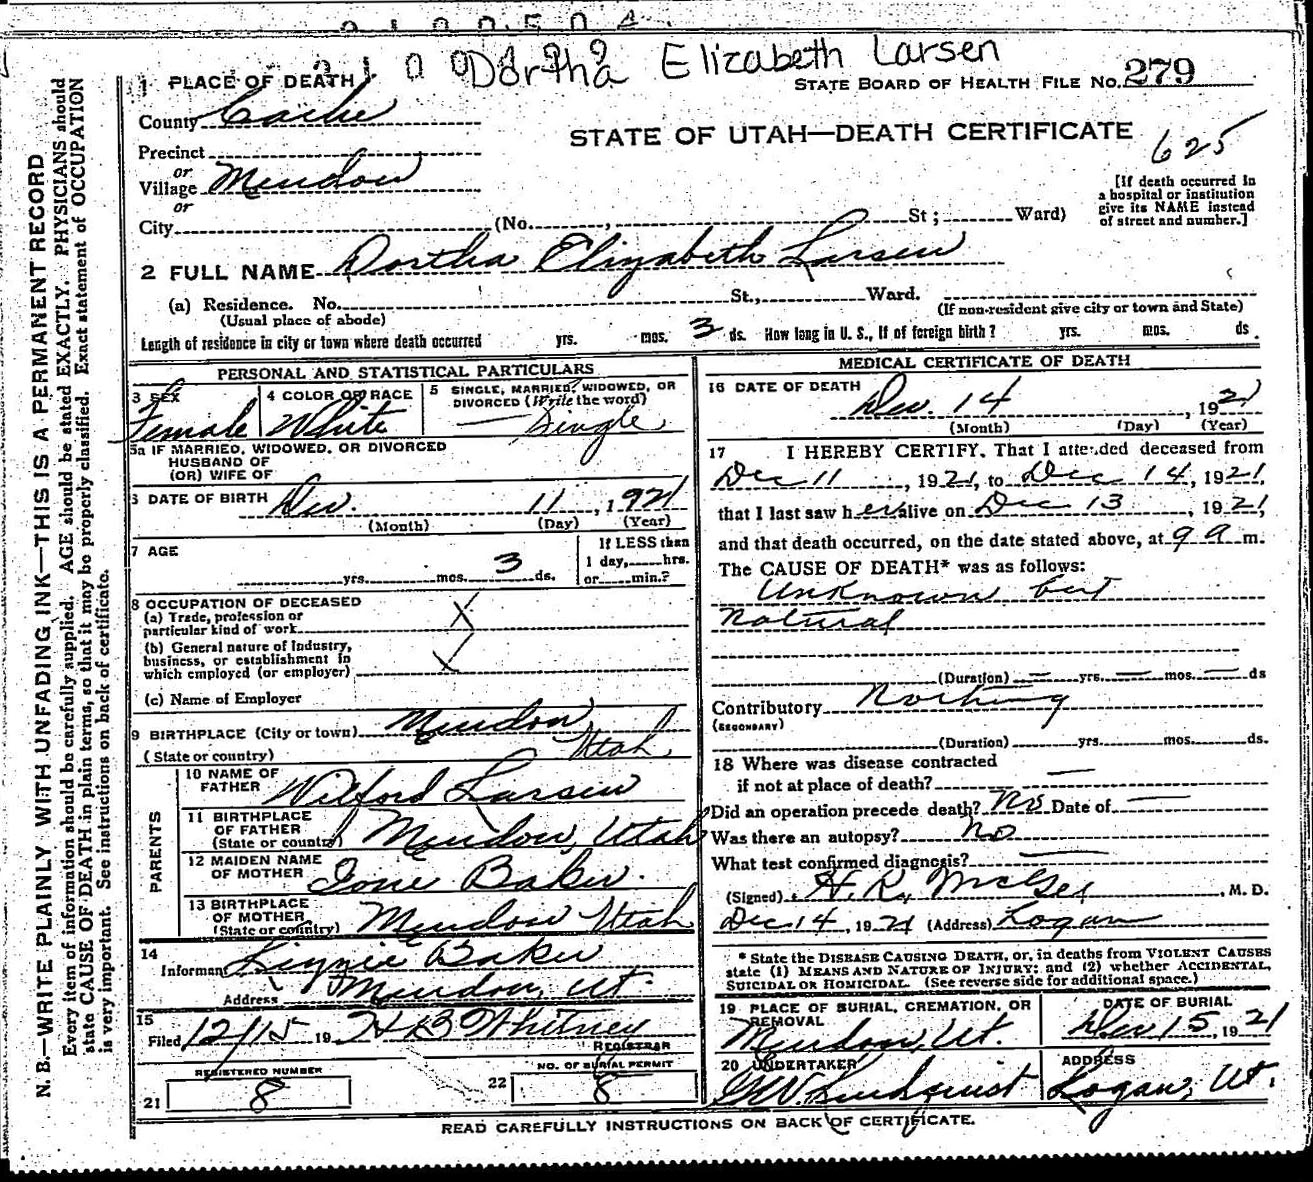 Dortha Elizabeth Larsen
1 PLACE OF DEATH
STATE BOARD OF HEALTH FILE No. 279
County Cache
STATE OF UTAH—DEATH CERTIFICATE
625
Precinct
or
Village Mendon
or
City (No. , St ; Ward)
[If death occurred in
a hospital or institution
give its NAME instead
of street and number.]
2 FULL NAME Dortha Elizabeth Larsen
(a) Residence. No. St., Ward.
(Usual place of abode)
(If non-resident give city or town and State)
Length of residence in city or town where death occurred yrs. mos. 3 ds. How long in U. S., if of foreign birth? yrs. mos. ds
PERSONAL AND STATISTICAL PARTICULARS
3 SEX
Female
4 COLOR OR RACE
White
5 SINGLE, MARRIED, WIDOWED, OR
DIVORCED (Write the word)
— Single
5a IF MARRIED, WIDOWED, OR DIVORCED
HUSBAND OF
(OR) WIFE OF
6 DATE OF BIRTH Dec. 11, 1921
(Month) (Day) (Year)
7 AGE
yrs. mos. 3 ds.
If LESS than
1 day, hrs.
or min.?
8 OCCUPATION OF DECEASED
(a) Trade, profession or
particular kind of work X
(b) General nature of Industry,
business, or establishment in
which employed (or employer) X
(c) Name of Employer
9 BIRTHPLACE (City or town) Mendon,
(State or country) Utah
PARENTS
10 NAME OF
FATHER Wilford Larsen
11 BIRTHPLACE
OF FATHER
(State or country) Mendon, Utah
12 MAIDEN NAME
OF MOTHER Ione Baker.
13 BIRTHPLACE
OF MOTHER
(State or country) Mendon Utah
14
Informant Linnie Baker
Address Mendon, Ut.
15
Filed 12/15 19 H B Whitney
REGISTRAR
REGISTERED NUMBER
21 8
NO. OF BURIAL PERMIT
22 8
MEDICAL CERTIFICATE OF DEATH
16 DATE OF DEATH
Dec. 14, 1921
(Month) (Day) (Year)
17 I HEREBY CERTIFY, That I attended deceased from
Dec 11, 1921, to Dec 14, 1921,
that I last saw her alive on Dec 13, 1921,
and that death occurred, on the date stated above, at 9 a m.
The CAUSE OF DEATH* was as follows:
Unknown but
Natural
(Duration) — yrs. — mos. — ds
Contributory Nothing
(SECONDARY)
(Duration) yrs. mos. ds.
18 Where was disease contracted
if not at place of death? —
Did an operation precede death? No Date of —
Was there an autopsy? No
What test confirmed diagnosis? —
(Signed) H. K. McGee, M. D.
Dec 14, 1921 (Address) Logan
* State the DISEASE CAUSING DEATH, or, in deaths from VIOLENT CAUSES
state (1) MEANS AND NATURE OF INJURY; and (2) whether ACCIDENTAL,
SUICIDAL OR HOMICIDAL. (See reverse side for additional space.)
19 PLACE OF BURIAL, CREMATION, OR
REMOVAL
Mendon, Ut.
DATE OF BURIAL
Dec 15, 1921
20 UNDERTAKER
G W. Lindquist
ADDRESS
Logan, Ut.
READ CAREFULLY INSTRUCTIONS ON BACK OF CERTIFICATE.
N. B.—WRITE PLAINLY WITH UNFADING INK—THIS IS A PERMANENT RECORD
Every item of information should be carefully supplied. AGE should be stated EXACTLY. PHYSICIANS should
state CAUSE OF DEATH in plain terms, so that it may be properly classified. Exact statement of OCCUPATION
is very important. See instructions on back of certificate.